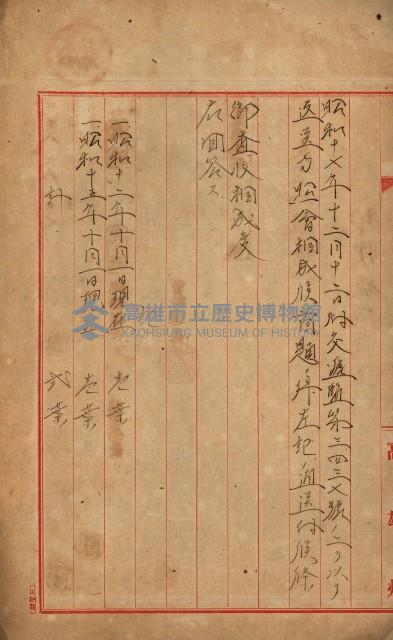 昭和十七年十二月十二日附交遞監第三四三七號ノ二ヲ以テ
送送方照會相成候首題ノ件左記ノ通送付候條
御査收相成度
右回答ス
記
一昭和十二年十月一日現在 壱葉
一昭和十五年十月一日現在 壱葉
計 弐葉
高雄州
高雄市立歷史博物館
KAOHSIUNG MUSEUM OF HISTORY